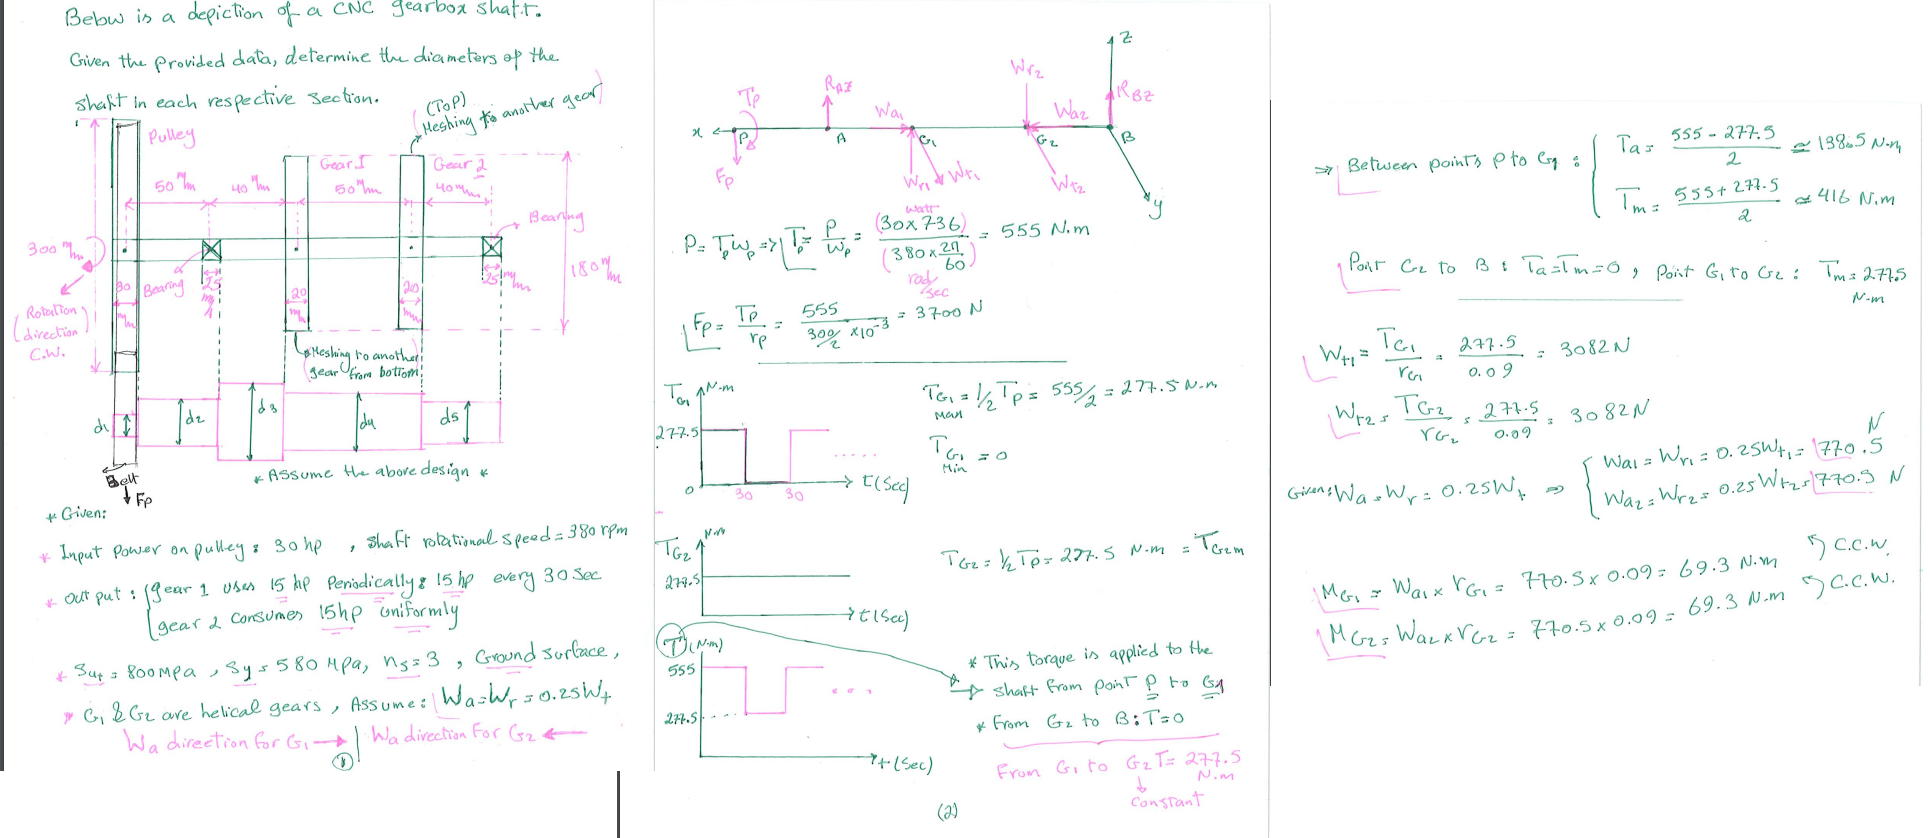 Below is a depiction of a CNC gearbox shaft.
Given the provided data, determine the diameters of the
shaft in each respective section.
(ToP)
Meshing to another gear
Pulley
Gear I
Gear 2
50 mm
40 mm
50 mm
40 mm
Bearing
300 mm
180 mm
Rotation
direction
C.W.
30
mm
Bearing
25
mm
20
mm
20
mm
25 mm
Meshing to another
gear from bottom
d1
d2
d3
d4
d5
* Assume the above design *
Belt
Fp
* Given:
* Input power on pulley: 30 hp , shaft rotational speed = 380 rpm
* output: gear 1 uses 15 hp Periodically: 15 hp every 30 sec
gear 2 consumes 15hp uniformly
* Sut = 800 MPa , Sy = 580 MPa, ns = 3 , Ground surface,
* G1 & G2 are helical gears, Assume: Wa=Wr=0.25Wt
Wa direction for G1 → | Wa direction For G2 ←
①
z
x
y
Tp
P
Fp
RAZ
A
Wa1
G1
Wr1
Wt1
Wr2
Wa2
G2
Wt2
RBZ
B
P = Tp ωp => Tp = P/ωp = (30×736)/(380×2π/60) = 555 N.m
watt
rad/sec
Fp = Tp/rp = 555/(300/2 ×10^-3) = 3700 N
TG1
N-m
277.5
0
30
30
t(sec)
TG1 Max = 1/2 Tp = 555/2 = 277.5 N-m
TG1 Min = 0
TG2
N.m
277.5
t(sec)
TG2 = 1/2 Tp = 277.5 N-m = TG2m
T (N-m)
555
277.5
t(sec)
* This torque is applied to the
shaft from point P to G1
* From G2 to B: T=0
From G1 to G2 T= 277.5
N.m
constant
(2)
⇒ Between points P to G1 : Ta = (555 - 277.5)/2 ≃ 138.5 N-m
Tm = (555 + 277.5)/2 ≃ 416 N.m
Point G2 to B : Ta=Tm=0 , Point G1 to G2 : Tm = 277.5
N-m
Wt1 = TG1/rG1 = 277.5/0.09 = 3082 N
Wt2 = TG2/rG2 = 277.5/0.09 = 3082 N
Given: Wa = Wr = 0.25Wt ⇒ Wa1 = Wr1 = 0.25Wt1 = 770.5 N
Wa2 = Wr2 = 0.25Wt2 = 770.5 N
MG1 = Wa1 × rG1 = 770.5 × 0.09 = 69.3 N.m C.C.W.
MG2 = Wa2 × rG2 = 770.5 × 0.09 = 69.3 N.m C.C.W.